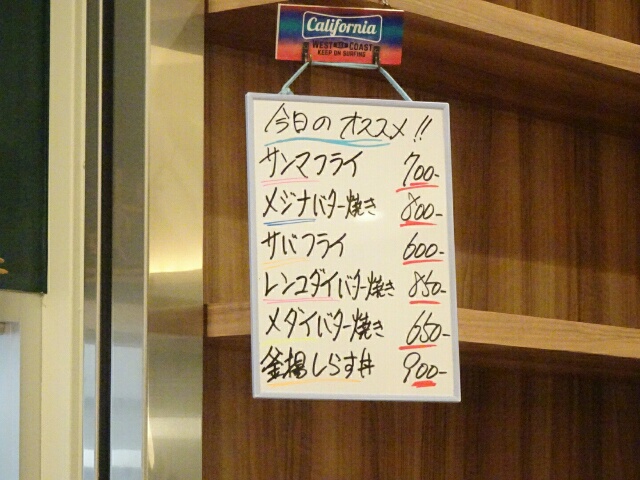 California
WEST COAST
KEEP ON SURFING
今日のオススメ!!
サンマフライ 700-
メジナバター焼き 800-
サバフライ 600-
レンコダイバター焼き 850-
メダイバター焼き 650-
釜揚しらす丼 900-